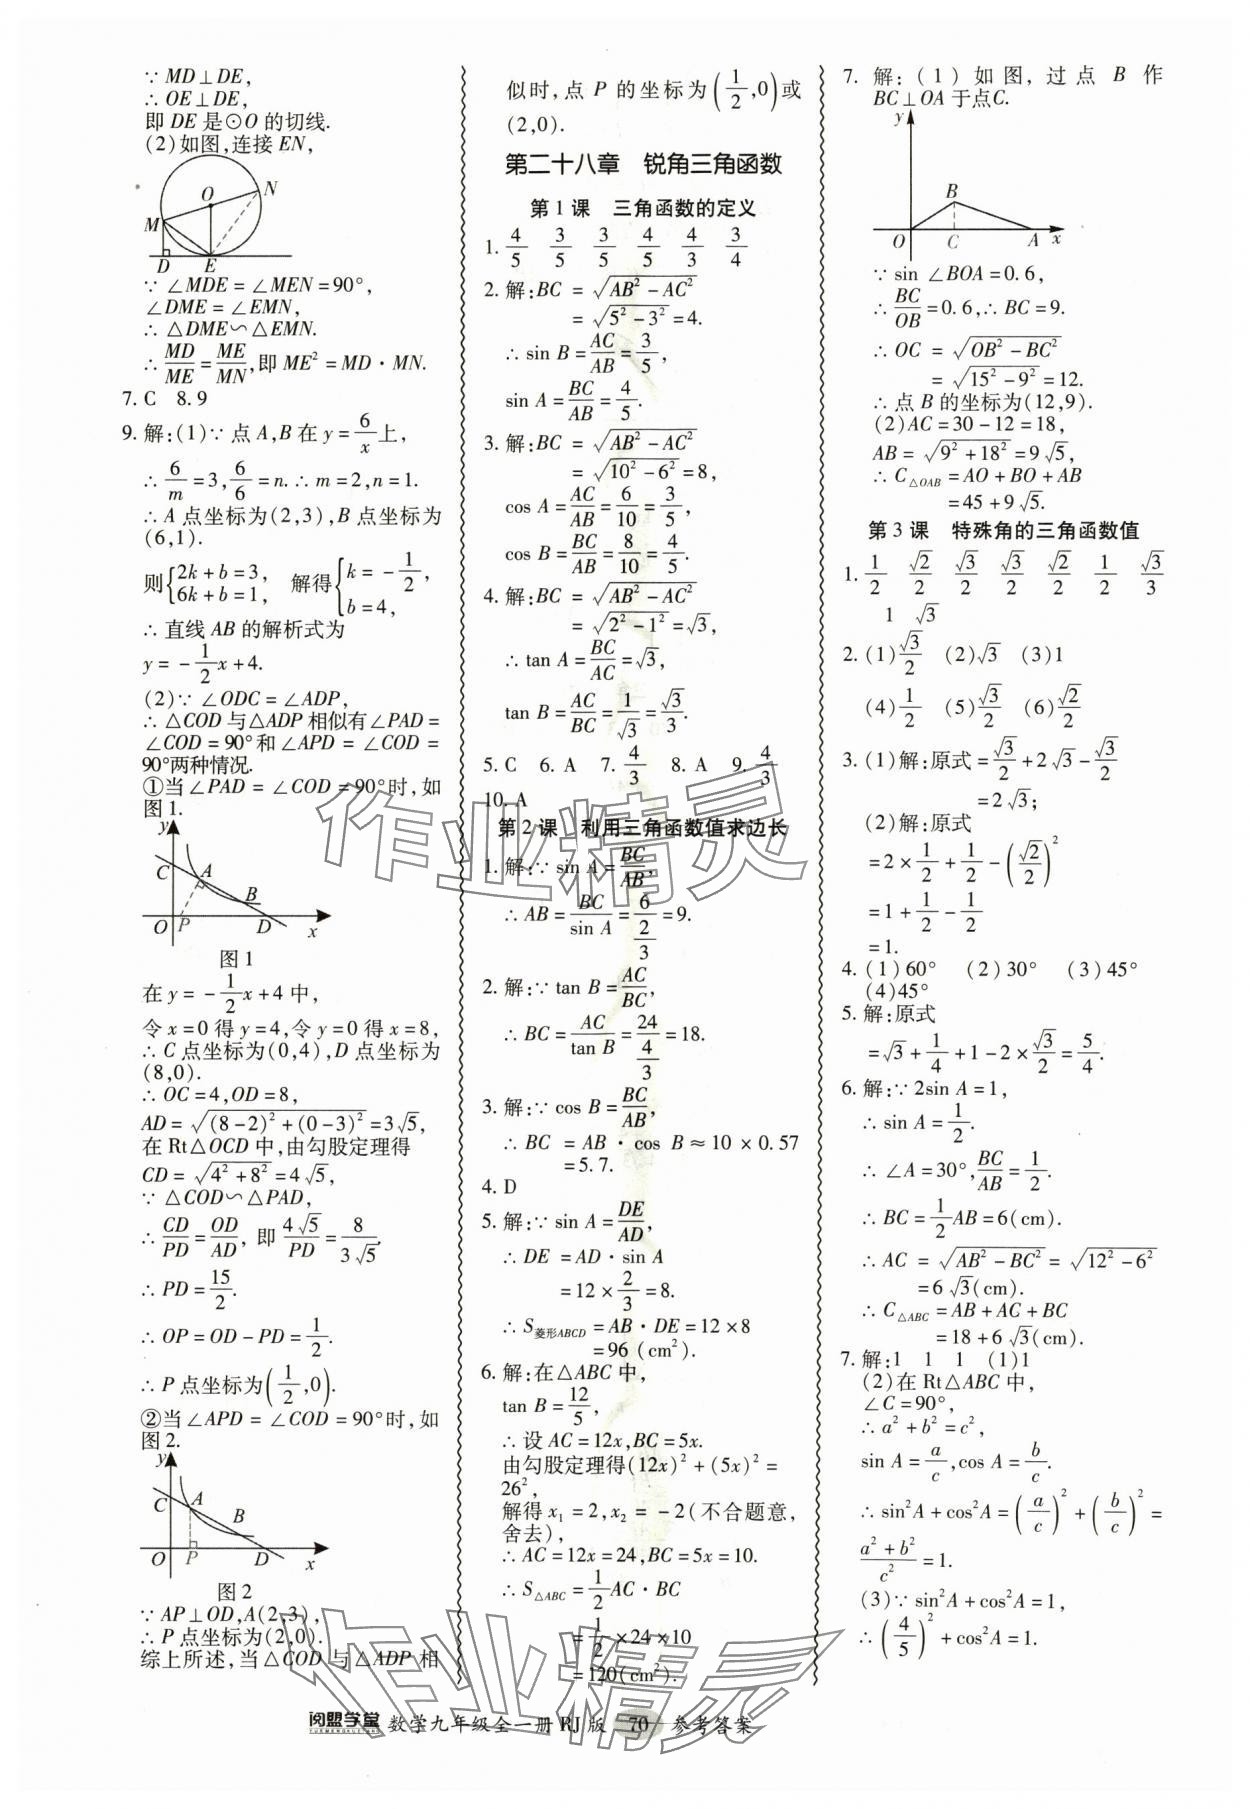 ∵ MD⊥DE,
∴ OE⊥DE,
即 DE 是⊙O 的切线.
(2)如图,连接 EN,
O N M D E
∵ ∠MDE = ∠MEN = 90°,
∠DME = ∠EMN,
∴ △DME∽△EMN.
∴ MD/ME = ME/MN, 即 ME² = MD · MN.
7. C 8. 9
9. 解:(1)∵ 点 A,B 在 y = 6/x 上,
∴ 6/m = 3, 6/6 = n. ∴ m = 2, n = 1.
∴ A 点坐标为(2,3), B 点坐标为
(6,1).
则{2k + b = 3, 6k + b = 1, 解得{k = -1/2, b = 4,
∴ 直线 AB 的解析式为
y = -1/2 x + 4.
(2)∵ ∠ODC = ∠ADP,
∴ △COD 与△ADP 相似有∠PAD =
∠COD = 90°和∠APD = ∠COD =
90°两种情况.
①当∠PAD = ∠COD = 90°时,如
图 1.
y C A B O P D x
图 1
在 y = -1/2 x + 4 中,
令 x = 0 得 y = 4, 令 y = 0 得 x = 8,
∴ C 点坐标为(0,4), D 点坐标为
(8,0).
∴ OC = 4, OD = 8,
AD = √((8-2)² + (0-3)²) = 3√5,
在 Rt△OCD 中,由勾股定理得
CD = √(4² + 8²) = 4√5,
∵ △COD∽△PAD,
∴ CD/PD = OD/AD, 即 4√5/PD = 8/3√5.
∴ PD = 15/2.
∴ OP = OD - PD = 1/2.
∴ P 点坐标为(1/2, 0).
②当∠APD = ∠COD = 90°时,如
图 2.
y C A B O P D x
图 2
∵ AP⊥OD, A(2,3),
∴ P 点坐标为(2,0).
综上所述,当△COD 与△ADP 相
似时,点 P 的坐标为(1/2, 0)或
(2,0).
第二十八章 锐角三角函数
第 1 课 三角函数的定义
1. 4/5 3/5 3/5 4/5 4/3 3/4
2. 解:BC = √(AB² - AC²)
= √(5² - 3²) = 4.
∴ sin B = AC/AB = 3/5,
sin A = BC/AB = 4/5.
3. 解:BC = √(AB² - AC²)
= √(10² - 6²) = 8,
cos A = AC/AB = 6/10 = 3/5,
cos B = BC/AB = 8/10 = 4/5.
4. 解:BC = √(AB² - AC²)
= √(2² - 1²) = √3,
∴ tan A = BC/AC = √3,
tan B = AC/BC = 1/√3 = √3/3.
5. C 6. A 7. 4/3 8. A 9. 4/3
10. A
第 2 课 利用三角函数值求边长
1. 解:∵ sin A = BC/AB,
∴ AB = BC/sin A = 6/(2/3) = 9.
2. 解:∵ tan B = AC/BC,
∴ BC = AC/tan B = 24/(4/3) = 18.
3. 解:∵ cos B = BC/AB,
∴ BC = AB · cos B ≈ 10 × 0.57
= 5.7.
4. D
5. 解:∵ sin A = DE/AD,
∴ DE = AD · sin A
= 12 × 2/3 = 8.
∴ S菱形ABCD = AB · DE = 12 × 8
= 96 (cm²).
6. 解:在△ABC 中,
tan B = 12/5,
∴ 设 AC = 12x, BC = 5x.
由勾股定理得(12x)² + (5x)² =
26²,
解得 x₁ = 2, x₂ = -2(不合题意,
舍去),
∴ AC = 12x = 24, BC = 5x = 10.
∴ S△ABC = 1/2 AC · BC
= 1/2 × 24 × 10
= 120(cm²).
7. 解:(1)如图,过点 B 作
BC⊥OA 于点C.
y B O C A x
∵ sin ∠BOA = 0.6,
∴ BC/OB = 0.6, ∴ BC = 9.
∴ OC = √(OB² - BC²)
= √(15² - 9²) = 12.
∴ 点 B 的坐标为(12,9).
(2)AC = 30 - 12 = 18,
AB = √(9² + 18²) = 9√5,
∴ C△OAB = AO + BO + AB
= 45 + 9√5.
第 3 课 特殊角的三角函数值
1. 1/2 √2/2 √3/2 √3/2 √2/2 1/2 √3/3
1 √3
2. (1)√3/2 (2)√3 (3)1
(4)1/2 (5)√3/2 (6)√2/2
3. (1)解:原式 = √3/2 + 2√3 - √3/2
= 2√3;
(2)解:原式
= 2 × 1/2 + 1/2 - (√2/2)²
= 1 + 1/2 - 1/2
= 1.
4. (1)60° (2)30° (3)45°
(4)45°
5. 解:原式
= √3 + 1/4 + 1 - 2 × √3/2 = 5/4.
6. 解:∵ 2sin A = 1,
∴ sin A = 1/2.
∴ ∠A = 30°, BC/AB = 1/2.
∴ BC = 1/2 AB = 6(cm).
∴ AC = √(AB² - BC²) = √(12² - 6²)
= 6√3(cm).
∴ C△ABC = AB + AC + BC
= 18 + 6√3(cm).
7. 解:1 1 1 (1)1
(2)在 Rt△ABC 中,
∠C = 90°,
∴ a² + b² = c²,
sin A = a/c, cos A = b/c.
∴ sin²A + cos²A = (a/c)² + (b/c)² =
(a² + b²)/c² = 1.
(3)∵ sin²A + cos²A = 1,
∴ (4/5)² + cos²A = 1.
作业精灵
作业精灵
阅盟学堂 数学九年级全一册 RJ 版 70 参考答案